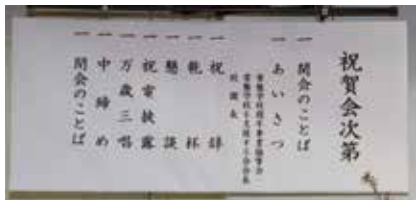 祝賀会次第
一 開会のことば
一 あいさつ
一 祝辞
一 乾杯
一 懇談
一 祝電披露
一 万歳三唱
一 中締め
一 閉会のことば